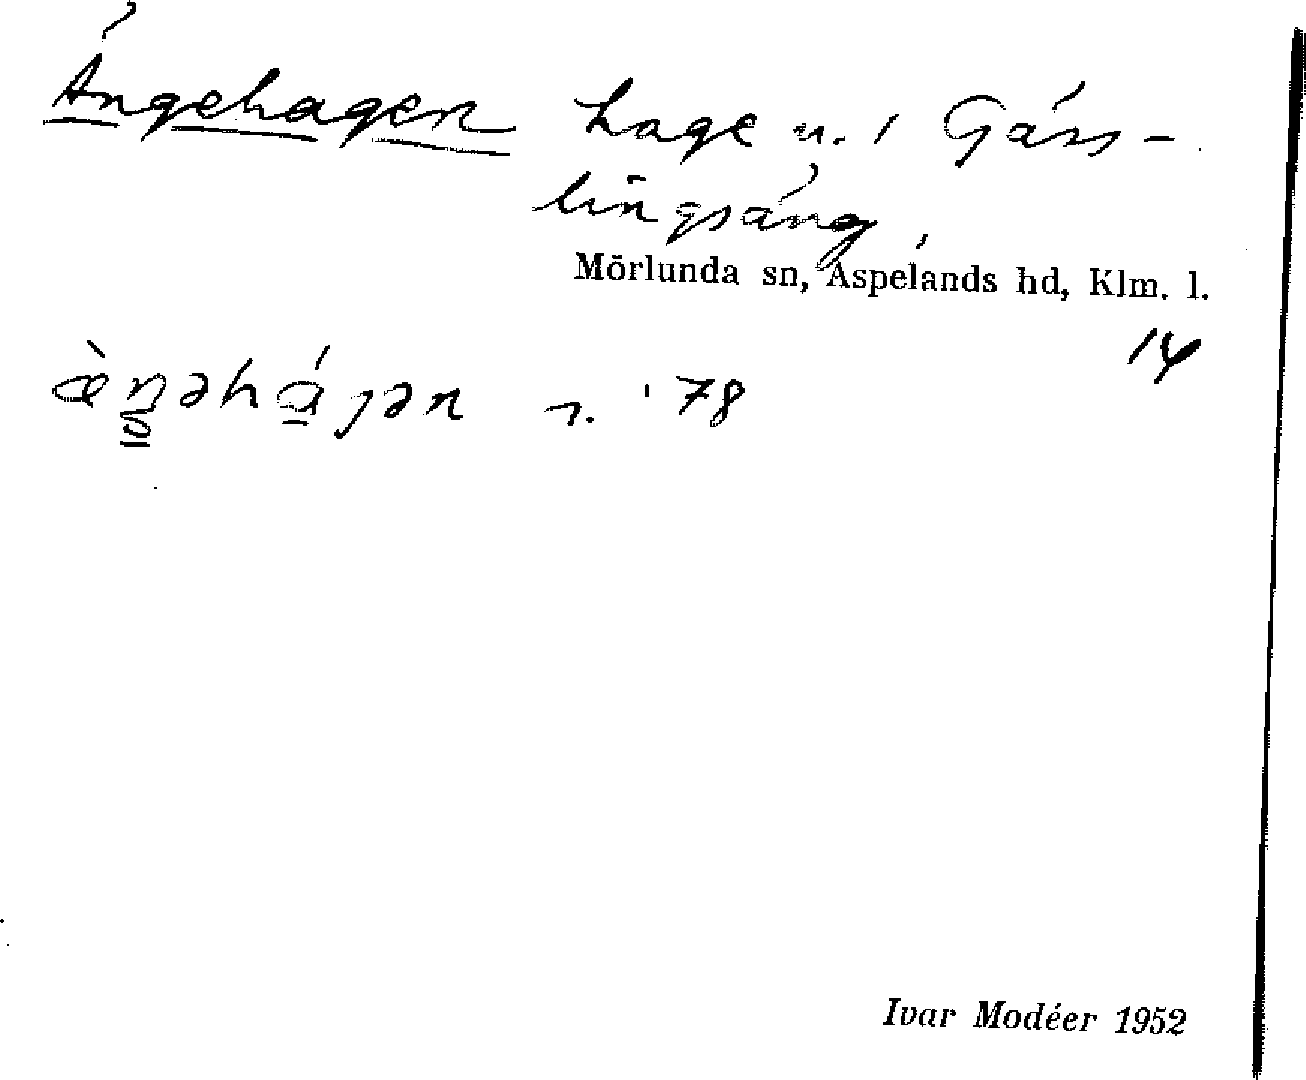 Ängehagen hage u. i Gäss-
lingsäng
Mörlunda sn, Aspelands hd, Klm. l.
14
s. '78
Ivar Modéer 1952